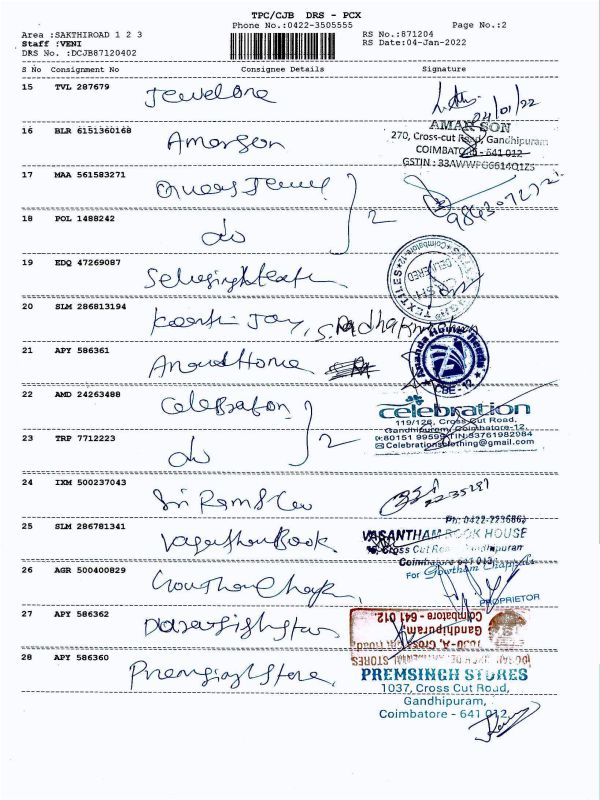 TPC/CJB DRS - PCX
Phone No.:0422-3505555 Page No.:2
Area :SAKTHIROAD 1 2 3 RS No.:871204
Staff :VENI RS Date:04-Jan-2022
DRS No. :DCJB87120402
S No Consignment No Consignee Details Signature
15 TVL 287679 Jewelone
04/01/22
16 BLR 6151360168 Amarson
AMARSON
270, Cross-cut Road, Gandhipuram
COIMBATORE - 641 012
GSTIN : 33AWWPG6614Q1ZS
17 MAA 561583271
2
18 POL 1488242 do
19 EDQ 47269087
TEXTILES Coimbatore-12
DELIVERED
20 SLM 286813194 S. Radhakrishnan
21 APY 586361 Anand Home
CBE - 12
22 AMD 24263488 Celebration
celebration
119/126, Cross Cut Road,
Gandhipuram, Coimbatore-12.
2
23 TRP 7712223 do
80151 99599 TIN:33761982984
Celebrationsclothing@gmail.com
24 IXM 500237043 Sri Ram
25 SLM 286781341 Vasantham Book
Ph: 0422-223686
VASANTHAM BOOK HOUSE
Cross Cut Road, Gandhipuram
Coimbatore-641 012
26 AGR 500400829 Gowtham
For Gowtham Chappals
PROPRIETOR
27 APY 586362
STORES
1030-A, Cross Cut Road,
Gandhipuram,
Coimbatore - 641 012.
28 APY 586360 Premsingh Store
PREMSINGH STORES
1037, Cross Cut Road,
Gandhipuram,
Coimbatore - 641 012